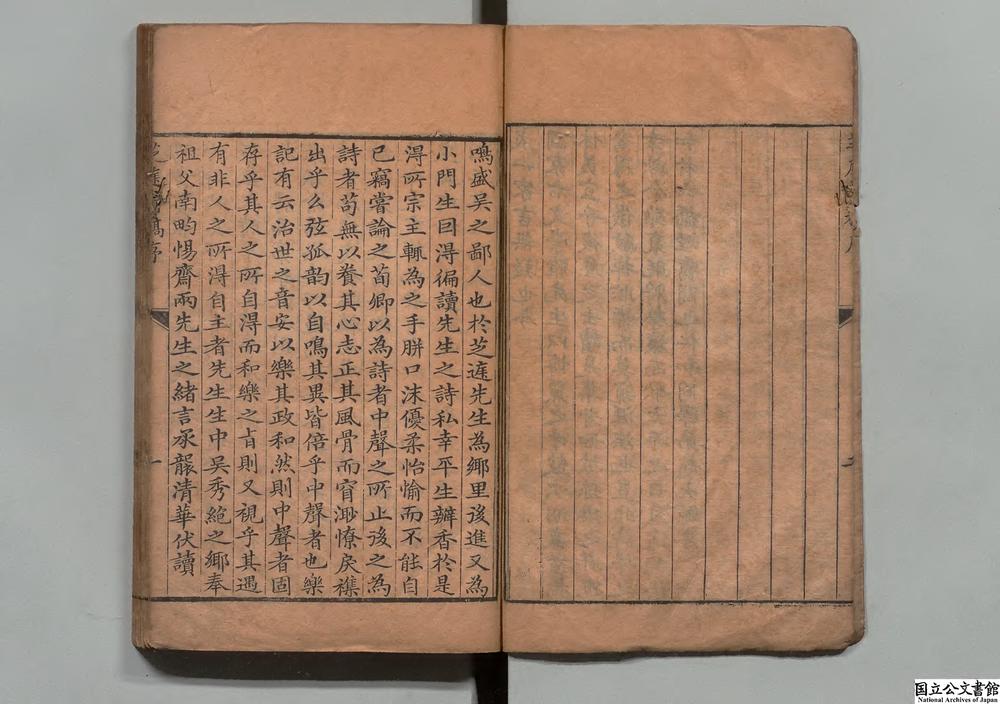 鳴盛吴之鄙人也於芝庭先生為鄉里後進又為
小門生曰得徧讀先生之詩私幸平生瓣香於是
得所宗主輒為之手胼口沫優柔怡愉而不能自
已竊嘗論之荀卿以為詩者中聲之所止後之為
詩者苟無以養其心志正其風骨而窅渺憭戾襍
出乎么弦孤韵以自鳴其異皆倍乎中聲者也樂
記有云治世之音安以樂其政和然則中聲者固
存乎其人之所自得而和樂之旨則又視乎其遇
有非人之所得自主者先生生中吴秀絶之鄉奉
祖父南畇惕齋兩先生之緒言承襲清華伏讀
芝庭 序
一
国立公文書館
National Archives of Japan